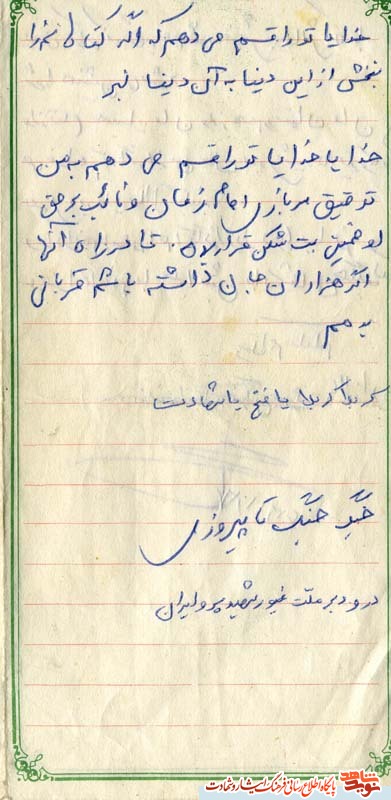 خدایا تو را قسم می دهم که اگر گناهانم را
نبخشی از این دنیا به آن دنیا نبر
خدایا خدایا تو را قسم می دهم به من
توفیق سربازی امام زمان و نائب بر حق
او خمینی بت شکن قرار بده. تا در راه آنها
اگر هزاران جان داشته باشم قربانی
بدهم
کربلا کربلا یا فتح یا شهادت
جنگ جنگ تا پیروزی
درود بر ملت غیور شهید پرور ایران
نوید شاهد
پایگاه اطلاع رسانی فرهنگ ایثار و شهادت